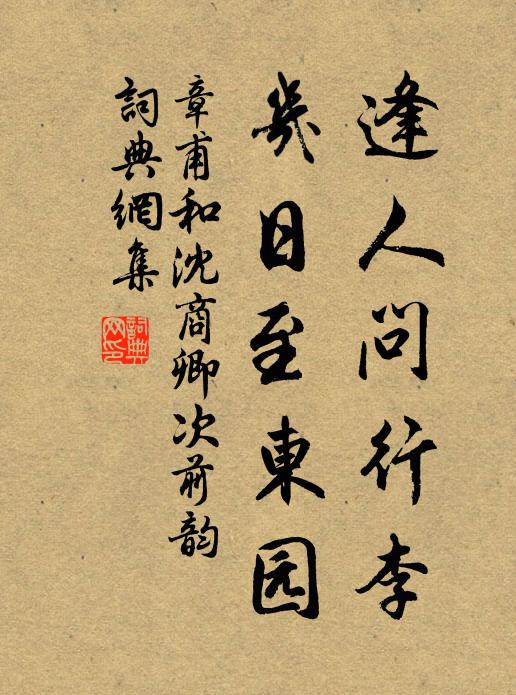 逢人問行李
幾日至東园
章甫和沈商卿次前韵
詞典網集
詞典网印